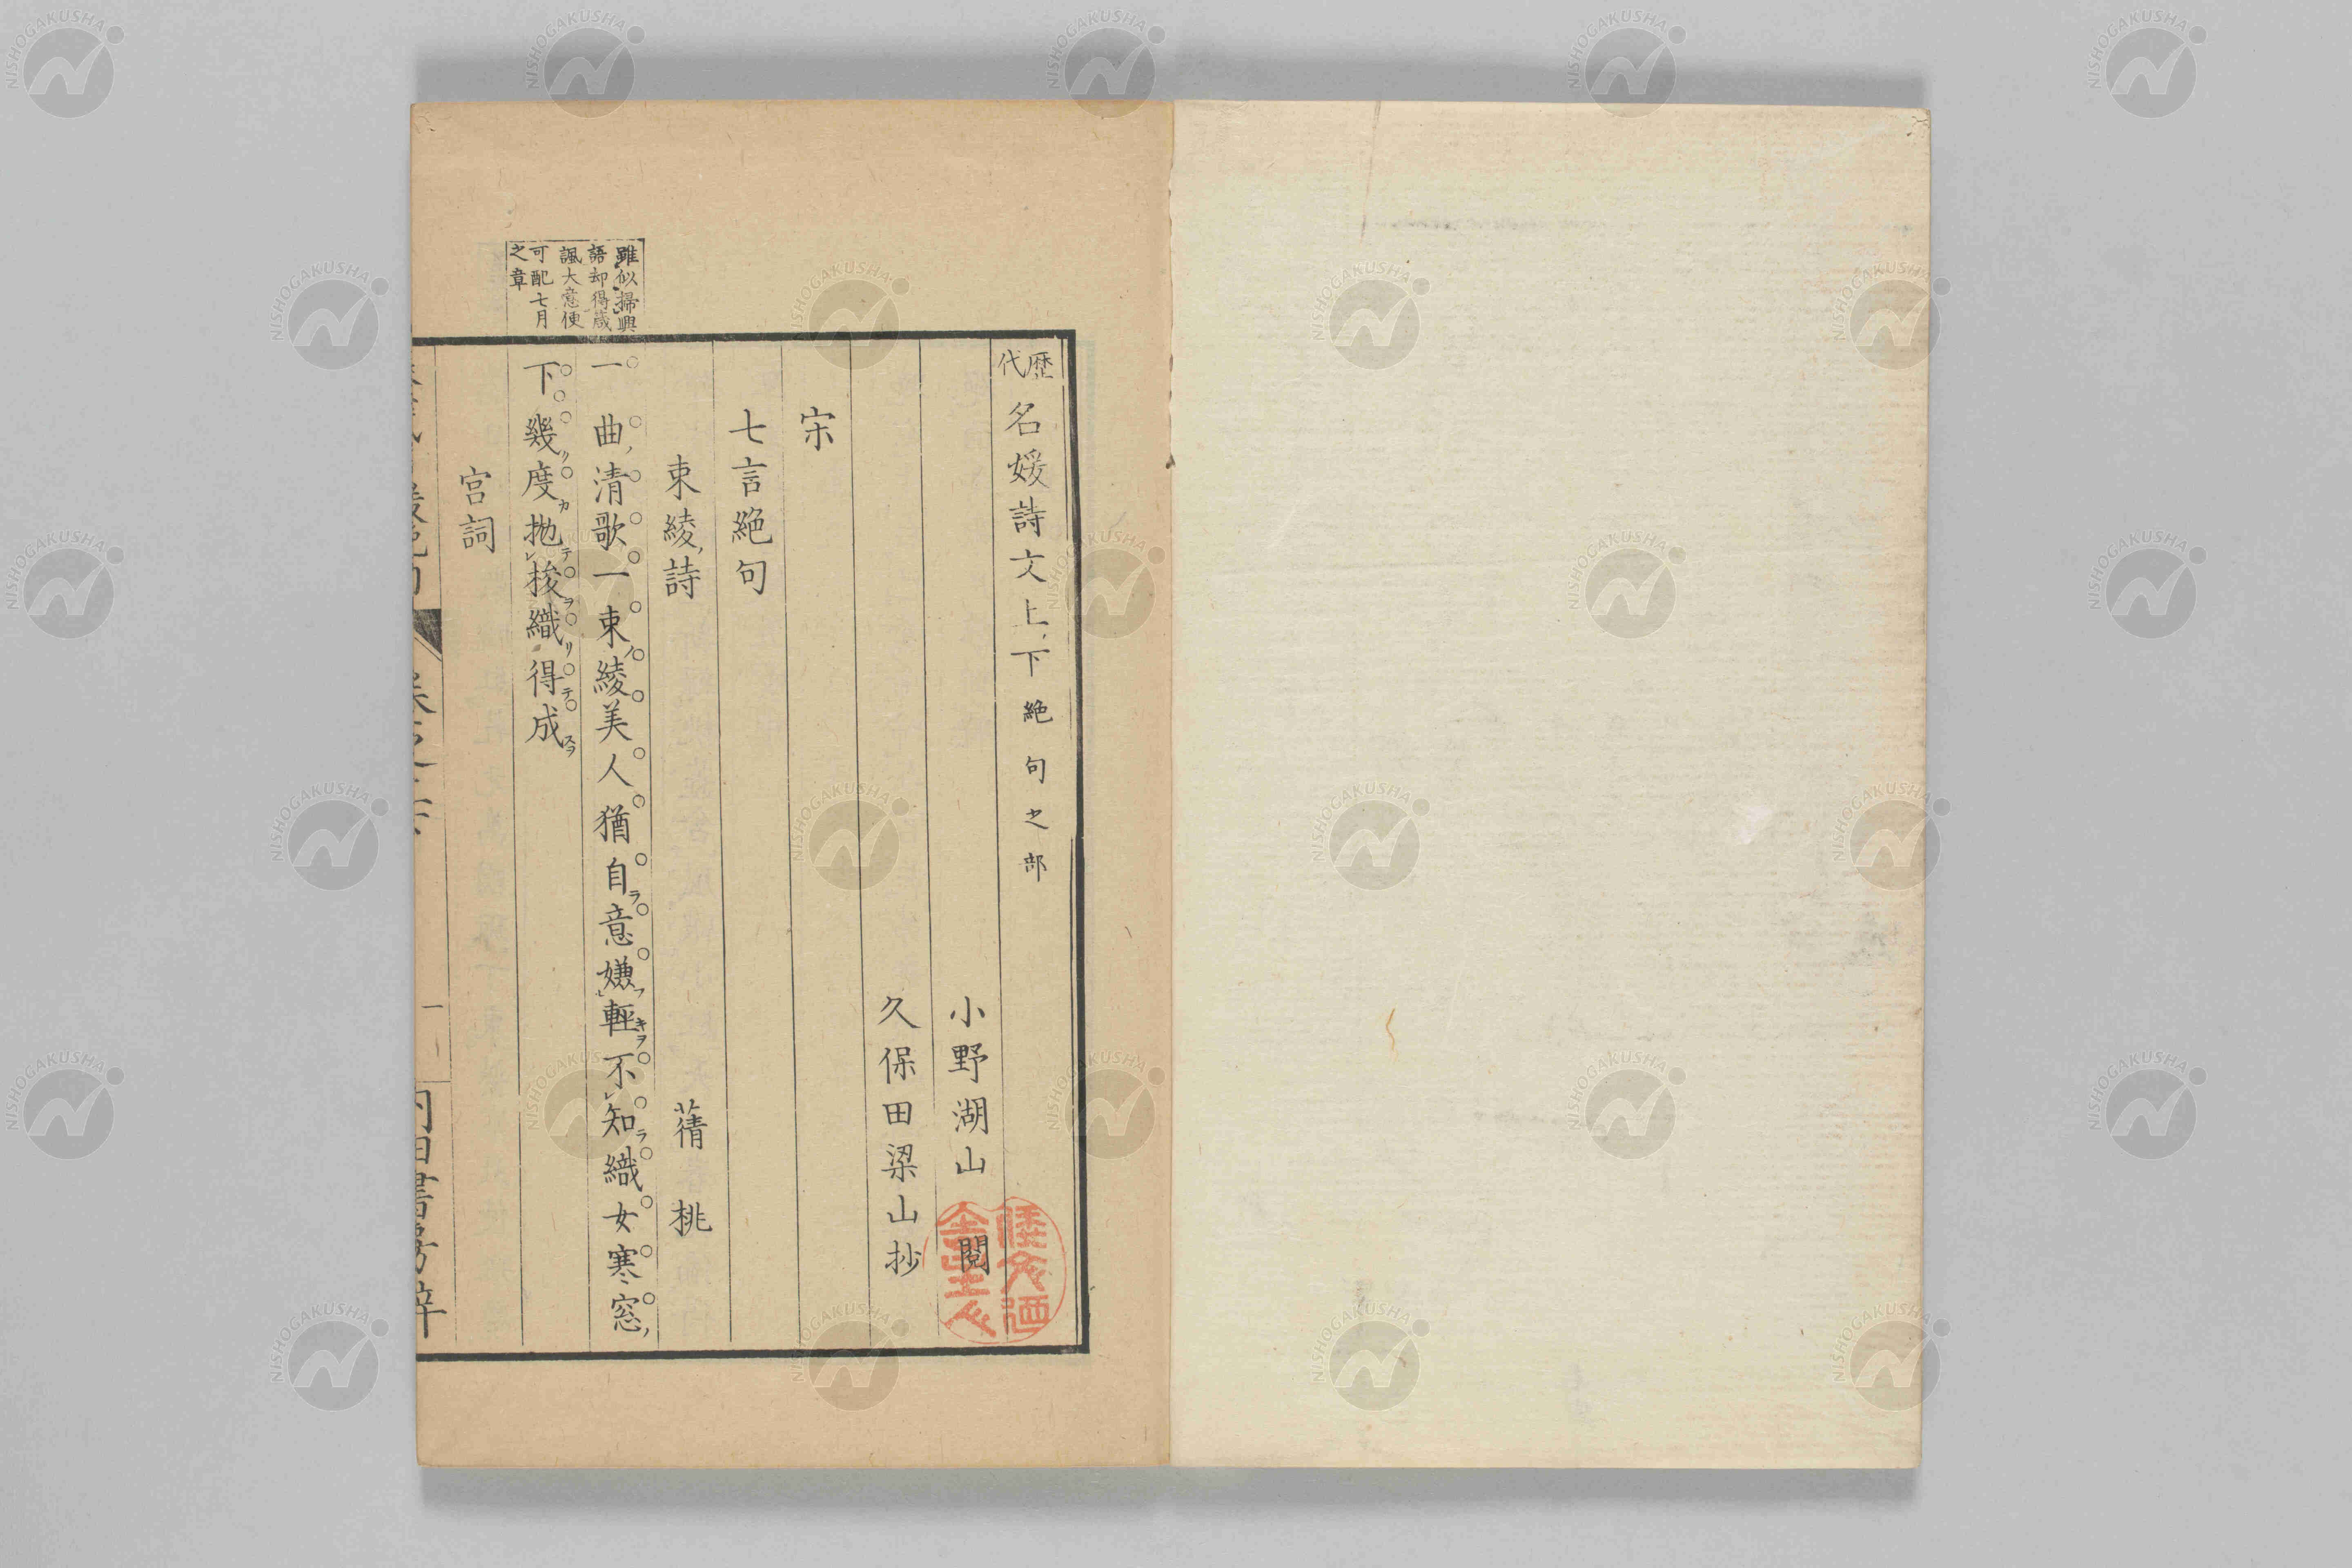 歴代名媛詩文上下絶句之部
小野湖山閲
久保田梁山抄
宋
七言絶句
束綾詩
蒨桃
一曲清歌一束綾美人猶自意嫌輕不知織女寒窓
下幾度抛梭織得成
宮詞
雖似掃興
語却得箴
諷大意便
可配七月
之章
一
NISHOGAKUSHA